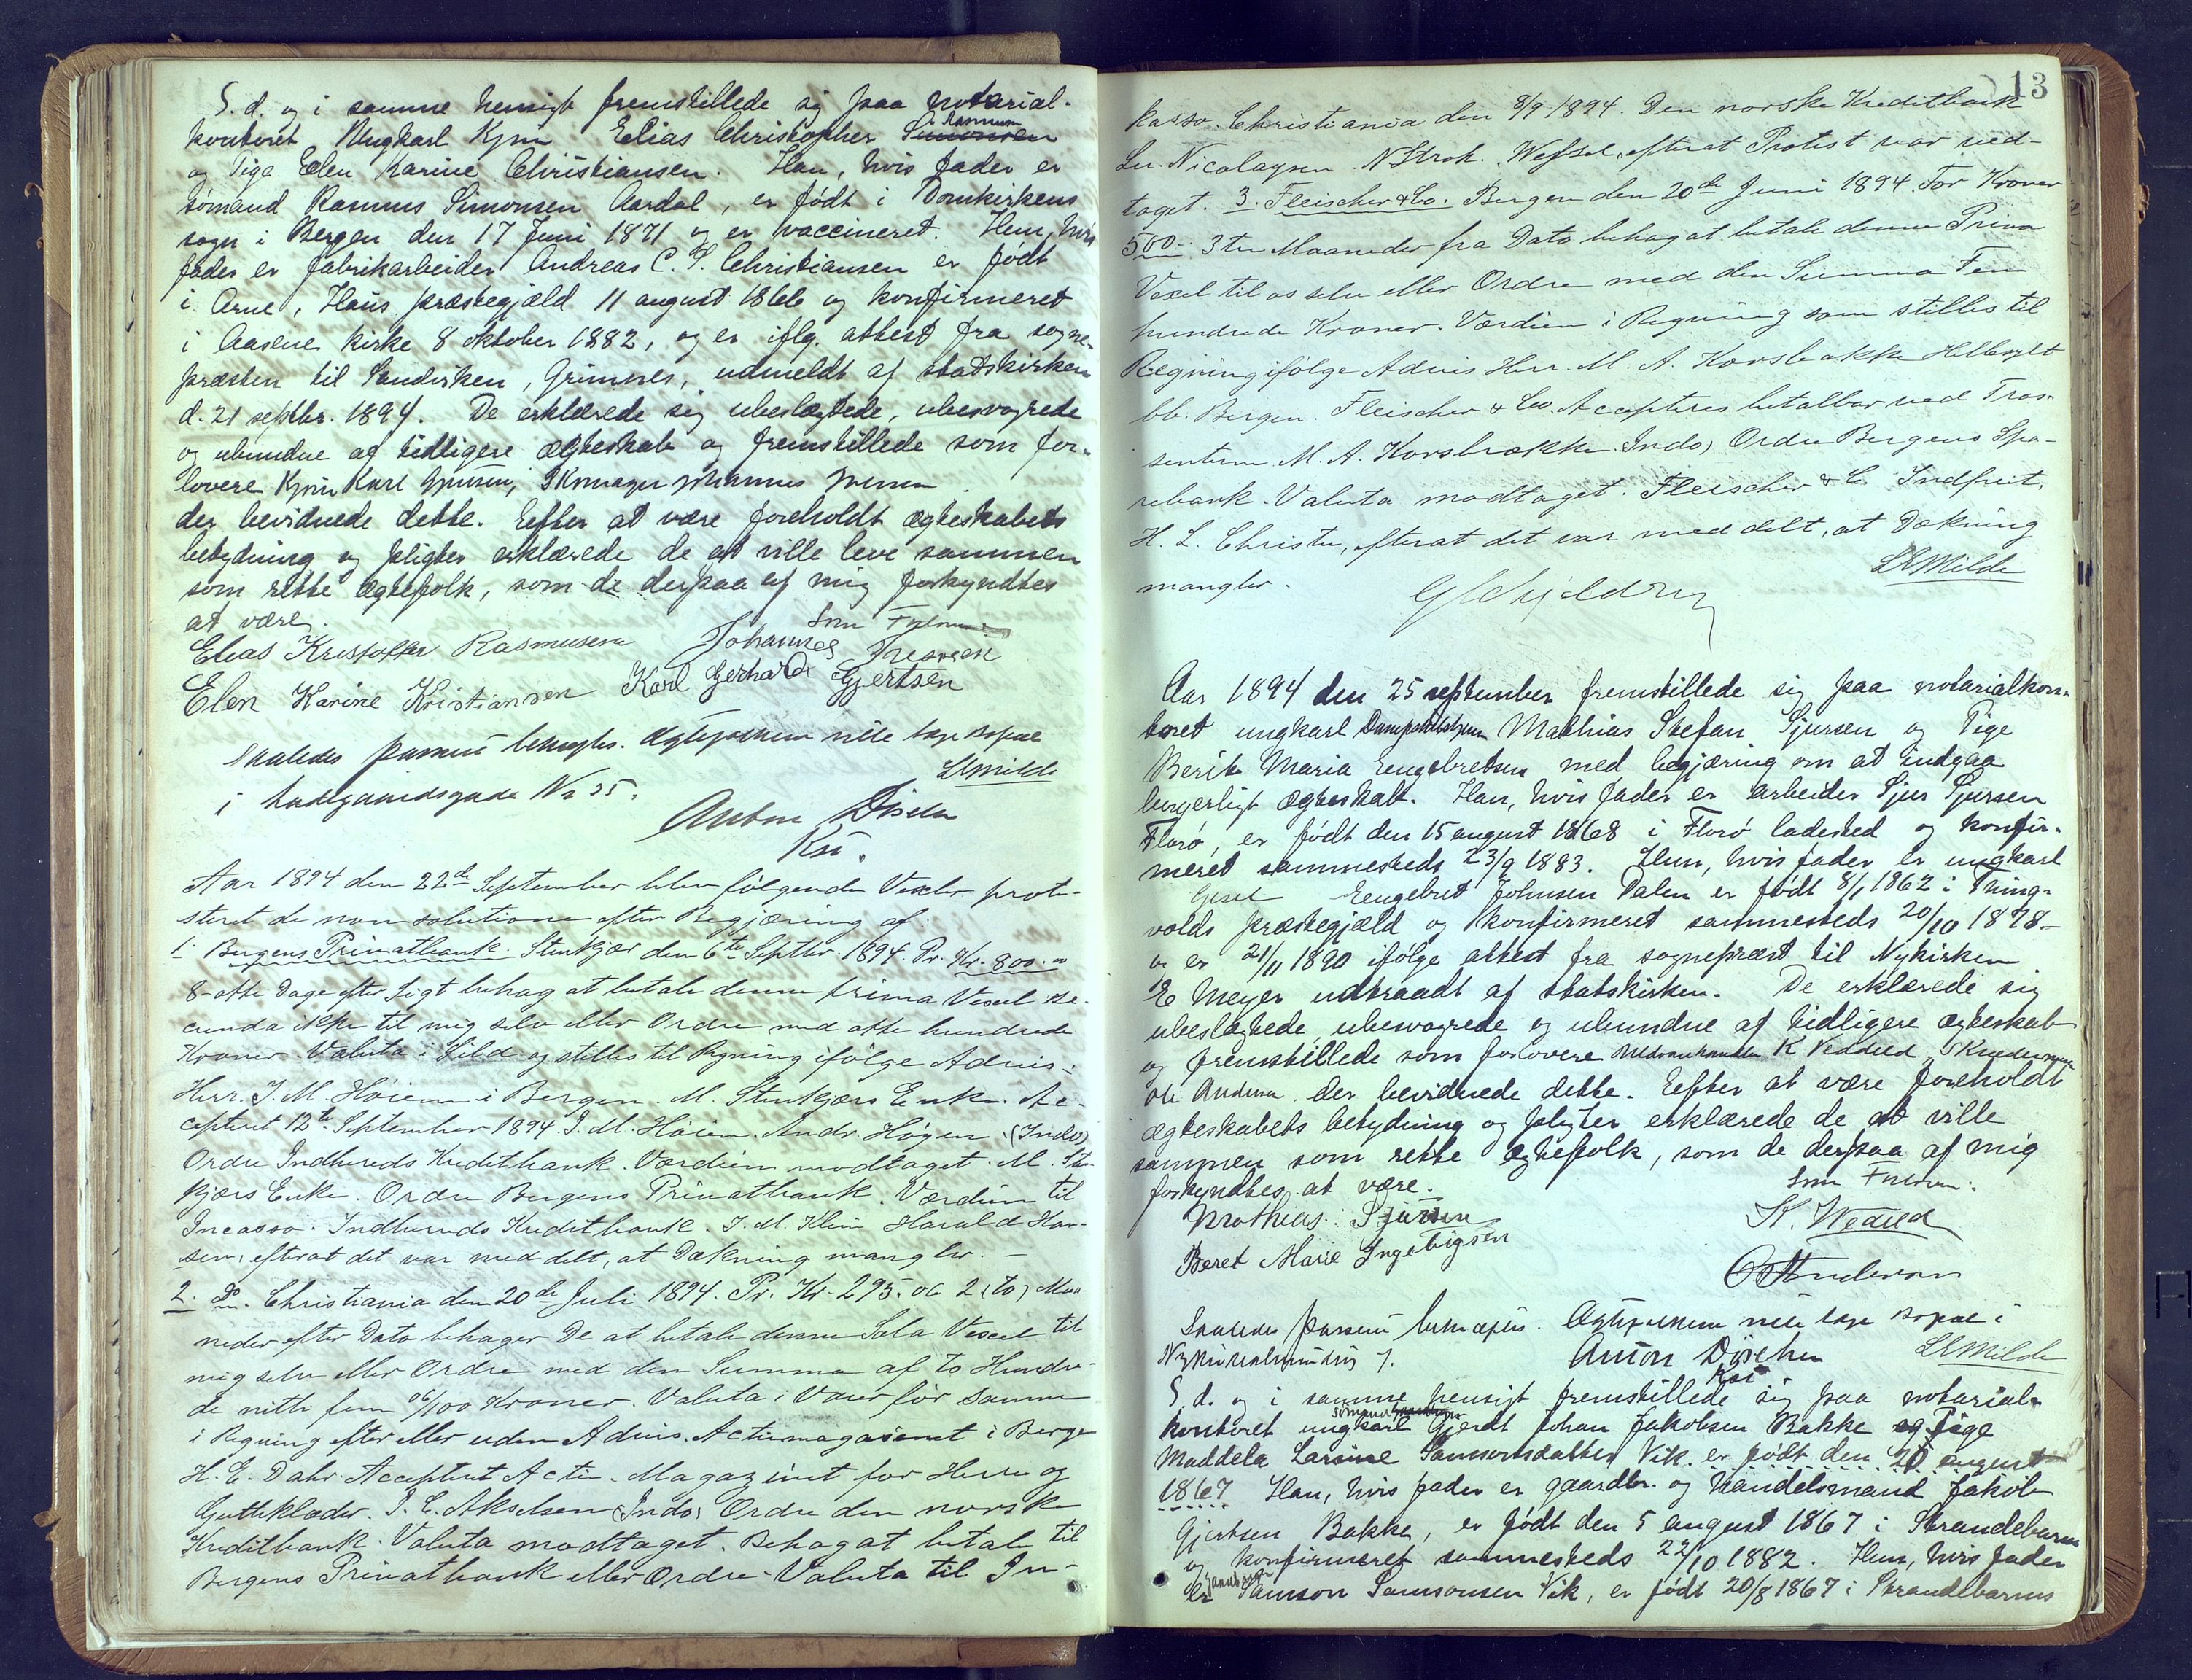 S. d. og i samme hensigt fremstillede sig paa notarial-
kontoret Ungkarl Kjm Elias Christopher Rasmussen Simonsen
og Pige Elen Karine Christiansen. Han, hvis fader er
sømand Rasmus Simonsen Aardal, er født i Domkirkens
sogn i Bergen den 17 Juni 1871 og er vaccineret. Hun, hvis
fader er fabrikarbeider Andreas C. P. Christiansen er født
i Arne, Haus præstegjæld 11 august 1866 og konfirmeret
i Aasene kirke 8 oktober 1882, og er iflg. attest fra sogne-
præsten til Sandviken, Grimnes, udmeldt af statskirken
d. 21 septbr. 1894. De erklærede sig ubeslægtede, ubesvogrede
og ubundne af tidligere ægteskab og fremstillede som for-
lovere Kjm Karl Gjertsen, Skomager Johannes Iversen
der bevidnede dette. Eefter at være foreholdt ægteskabets
betydning og pligter erklærede de at ville leve sammen
som rette ægtefolk, som de derpaa af mig forkyndtes
at være.
Som Forlovere:
Elias Kristoffer Rasmusen Johannes Iversen
Elen Karine Kristiansen Karl Gerhard Gjertsen
Saaledes passeret bekræftes. Ægtefolkene ville tage bopæl
i Ladegaardsgade No 55.
LMilde
Anton Døscher
Kst.
Aar 1894 den 22de September blev følgende Vexler prote-
steret de non solutione efter Begjæring af:
1. Bergens Privatbank. Stenkjær den 6te Septbr. 1894. Pr. Kr. 800.
8-otte Dage efter Sigt behag at betale denne prima Vexel se-
cunda ikke til mig selv eller Ordre med otte hundrede
Kroner. Valuta i Sild og stilles til Regning ifølge Advis.
Herr. J. M. Høiem i Bergen. M. Stenkjærs Enke. Ac-
cepteret 12te September 1894. J. M. Høiem. Andr. Høgen. (Indo)
Ordre Indhereds Kreditbank. Værdien modtaget. M. Sten-
kjærs Enke. Ordre Bergens Privatbank. Værdien til
Incasso. Indhereds Kreditbank. J. M. Klem Harald Han-
sen, efterat det var meddelt, at Dækning mangler. —
2. Do. Christiania den 20de Juli 1894. Pr. Kr. 295.06 2 (to) Maa-
neder efter Dato behager De at betale denne Sola Vexel til
mig selv eller Ordre med den Summa af to Hundre-
de nitti fem 06/100 Kroner. Valuta i Varer før samme
i Regning efter eller uden Advis. Actiemagasinet i Bergen
H. E. Dahr. Accepteret Actie-Magazinet for Herre og
Gutteklæder. P. C. Akselsen (Indo) Ordre den norske
Kreditbank. Valuta modtaget. Behag at betale til
Bergens Privatbank eller Ordre. Valuta til In-
13
kasso. Christiania den 8/9 1894. Den norske Kreditbank
Lu. Nicolaysen. N Stroh. Wessel, efterat Protest var ned-
taget. 3. Fleischer & Co. Bergen den 20de Juni 1894. For Kroner
500.- 3 tre Maaneder fra Dato behag at betale denne Prima
Vexel til os selv eller Ordre med den Summa Fem
hundrede Kroner. Værdien i Regning som stilles til
Regning ifølge Advis Herr. M. A. Korsbrække Hellesylt
bb. Bergen. Fleischer & Co. Accepteres betalbar ved Tras-
senterne M. A. Korsbrække. Indo, Ordre Bergens Spa-
rebank. Valuta modtaget. Fleischer & C. Indfriet.
H. L. Christie, efterat det var meddelt, at Dækning
mangler.
LMilde
G Schjelderup
Aar 1894 den 25 september fremstillede sig paa notarialkon-
toret ungkarl Mathias Stefan Sjursen og Pige
Berit Maria Eengebretsen med begjæring om at indgaa
borgerligt ægteskab. Han, hvis fader er arbeider Sjur Sjursen
Florø, er født den 15 august 1868 i Florø ladested og konfir-
meret sammesteds 23/9 1883. Hun, hvis fader er ungkarl
Eengebret Johnsen Dalen er født 8/1 1862 i Thing-
volds præstegjæld og konfirmeret sammesteds 20/10 1878 —
og er 21/11 1890 ifølge attest fra sognepræst til Nykirken
E Meyer udtraadt af statskirken. De erklærede sig
ubeslægtede, ubesvogrede og ubundne af tidligere ægteskab
og fremstillede som forlovere K Veddeld,
Ole Andersen, der bevidnede dette. Eefter at være foreholdt
ægteskabets betydning og pligter erklærede de at ville
sammen som rette ægtefolk, som de derpaa af mig
forkyndtes at være.
Som Forlovere:
Mathias Sjursen K. Wedeld
Beret Marie Ingebrigsen
O Andersen
Saaledes passeret bekræftes. Ægtefolkene ville tage bopæl i
Nykirkealmindnig 7. Anton Døscher LMilde
Kst
S. d. og i samme hensigt fremstillede sig paa notarial-
kontoret ungkarl sømand Gjerdt Johan Jakobsen Bakke og Pige
Maddela Larsine Samsonsdatter Vik er født den 20 august
1867 Han, hvis fader er gaardbr. og handelsmand Jakob
Gjertsen Bakke, er født den 5 august 1867 i Strandebarm
og konfirmeret sammesteds 22/10 1882. Hun, hvis fader
er Samson Samsonsen Vik, er født 20/8 1867 i Strandebarms